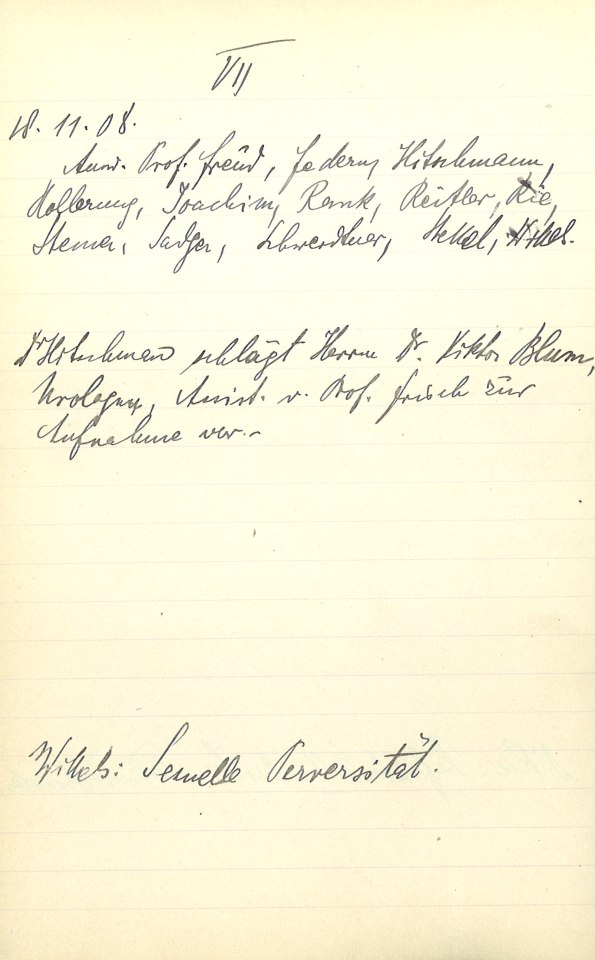 VII
18. 11. 08.
Anw. Prof. Freud, Federn, Hitschmann,
Hollerung, Joachim, Rank, Reitler, Rie,
Steiner, Sadger, Schwerdtner, Stekel, Wittels.
Dr Hitschman schlägt Herrn Dr. Viktor Blum,
Urologen, Assist. v. Prof. Frisch zur
Aufnahme vor.-
Wittels: Sexuelle Perversität.